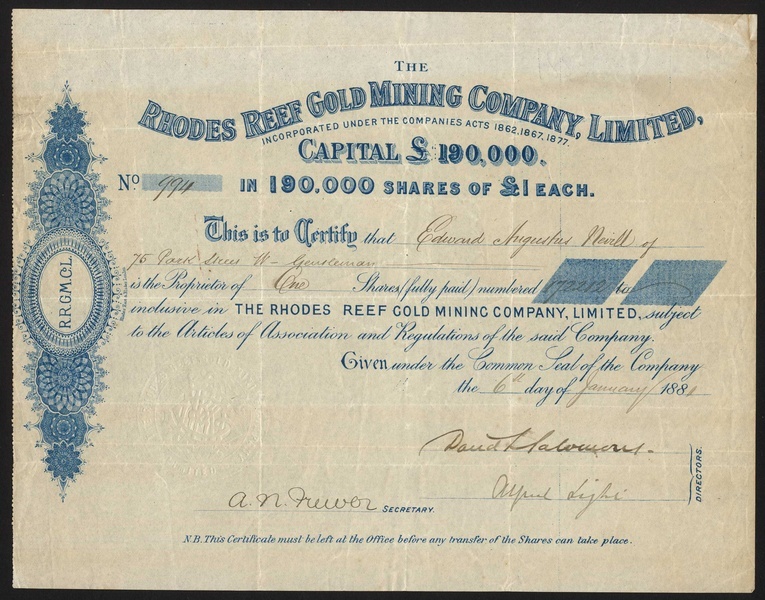 THE
RHODES REEF GOLD MINING COMPANY, LIMITED,
INCORPORATED UNDER THE COMPANIES ACTS 1862.1867.1877.
CAPITAL £ 190,000.
No 994 IN 190.000 SHARES OF £1 EACH.
This is to Certify that Edward Augustus Nevill of
75 Park Street W. Gentleman
is the Proprietor of One Shares (fully paid) numbered 172212 to
inclusive in THE RHODES REEF GOLD MINING COMPANY, LIMITED, subject
to the Articles of Association and Regulations of the said Company.
Given under the Common Seal of the Company
the 6th day of January 188
R.R.G.M.Co.L.
David L Salomons.
Alfred Light
DIRECTORS.
A. N. Frewer SECRETARY.
N.B. This Certificate must be left at the Office before any transfer of the Shares can take place.